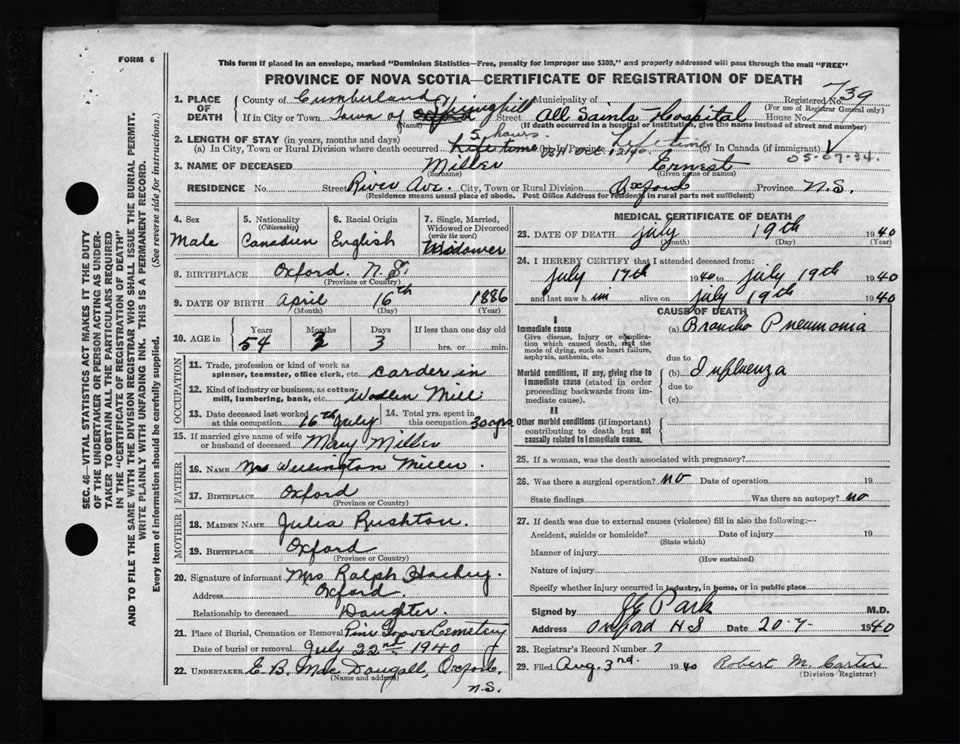 FORM 6
This form if placed in an envelope, marked "Dominion Statistics—Free, penalty for improper use $300," and properly addressed will pass through the mail "FREE"
PROVINCE OF NOVA SCOTIA—CERTIFICATE OF REGISTRATION OF DEATH
739
1. PLACE OF DEATH County of Cumberland Municipality of Registered No. (For use of Registrar General only)
If in City or Town Town of Springhill All Saints Hospital House No.
(Name) (If death occurred in a hospital or institution, give the name instead of street and number)
2. LENGTH OF STAY (in years, months and days) 5 hours.
(a) In City, Town or Rural Division where death occurred Life time (b) In Province Life time (c) In Canada (if immigrant)
05-07-34.
3. NAME OF DECEASED Miller Ernest
(Surname) (Given name or names)
RESIDENCE No. Street River Ave. City, Town or Rural Division Oxford Province N.S.
(Residence means usual place of abode. Post Office Address for residence in rural parts not sufficient)
4. Sex Male
5. Nationality (Citizenship) Canadien
6. Racial Origin English
7. Single, Married, Widowed or Divorced (write the word) Widower
8. BIRTHPLACE Oxford. N.S.
(Province or Country)
9. DATE OF BIRTH April 16th 1886
(Month) (Day) (Year)
10. AGE in Years 54 Months 3 Days 3 If less than one day old hrs. or min.
OCCUPATION
11. Trade, profession or kind of work as spinner, teamster, office clerk, etc. carder in
12. Kind of industry or business, as cotton-mill, lumbering, bank, etc. Woolen Mill
13. Date deceased last worked at this occupation 16th July
14. Total yrs. spent in this occupation 30 yrs
15. If married give name of wife or husband of deceased Mary Miller
FATHER
16. NAME Mr Wellington Miller.
17. BIRTHPLACE Oxford
(Province or Country)
MOTHER
18. MAIDEN NAME Julia Rushton.
19. BIRTHPLACE Oxford
(Province or Country)
20. Signature of informant Mrs Ralph
Address Oxford.
Relationship to deceased Daughter.
21. Place of Burial, Cremation or Removal Pine Grove Cemetery
Date of burial or removal July 22nd 1940
22. UNDERTAKER E. B. Mac Dougall, Oxford.
(Name and address) N.S.
MEDICAL CERTIFICATE OF DEATH
23. DATE OF DEATH July 19th 1940
(Month) (Day) (Year)
24. I HEREBY CERTIFY that I attended deceased from:
July 17th 1940 to July 19th 1940
and last saw him alive on July 19th 1940
CAUSE OF DEATH
I
Immediate cause (a) Broncho Pneumonia
Give disease, injury or complication which caused death, not the mode of dying, such as heart failure, asphyxia, asthenia, etc.
due to
Morbid conditions, if any, giving rise to immediate cause (stated in order proceeding backwards from immediate cause). (b) Influenza
due to
(c)
II
Other morbid conditions (if important) contributing to death but not causally related to immediate cause.
25. If a woman, was the death associated with pregnancy?
26. Was there a surgical operation? no Date of operation 19
State findings Was there an autopsy? no
27. If death was due to external causes (violence) fill in also the following:—
Accident, suicide or homicide? Date of injury 19
(State which)
Manner of injury
(How sustained)
Nature of injury
Specify whether injury occurred in industry, in home, or in public place
Signed by Park M.D.
Address Oxford NS Date 20-7- 1940
28. Registrar's Record Number 7
29. Filed Aug. 3rd. 1940 Robert M. Carter
(Division Registrar)
SEC. 46—VITAL STATISTICS ACT MAKES IT THE DUTY
OF THE UNDERTAKER OR PERSON ACTING AS UNDER-
TAKER TO OBTAIN ALL THE PARTICULARS REQUIRED
IN THE "CERTIFICATE OF REGISTRATION OF DEATH"
AND TO FILE THE SAME WITH THE DIVISION REGISTRAR WHO SHALL ISSUE THE BURIAL PERMIT.
WRITE PLAINLY WITH UNFADING INK. THIS IS A PERMANENT RECORD.
Every item of information should be carefully supplied. (See reverse side for instructions.)